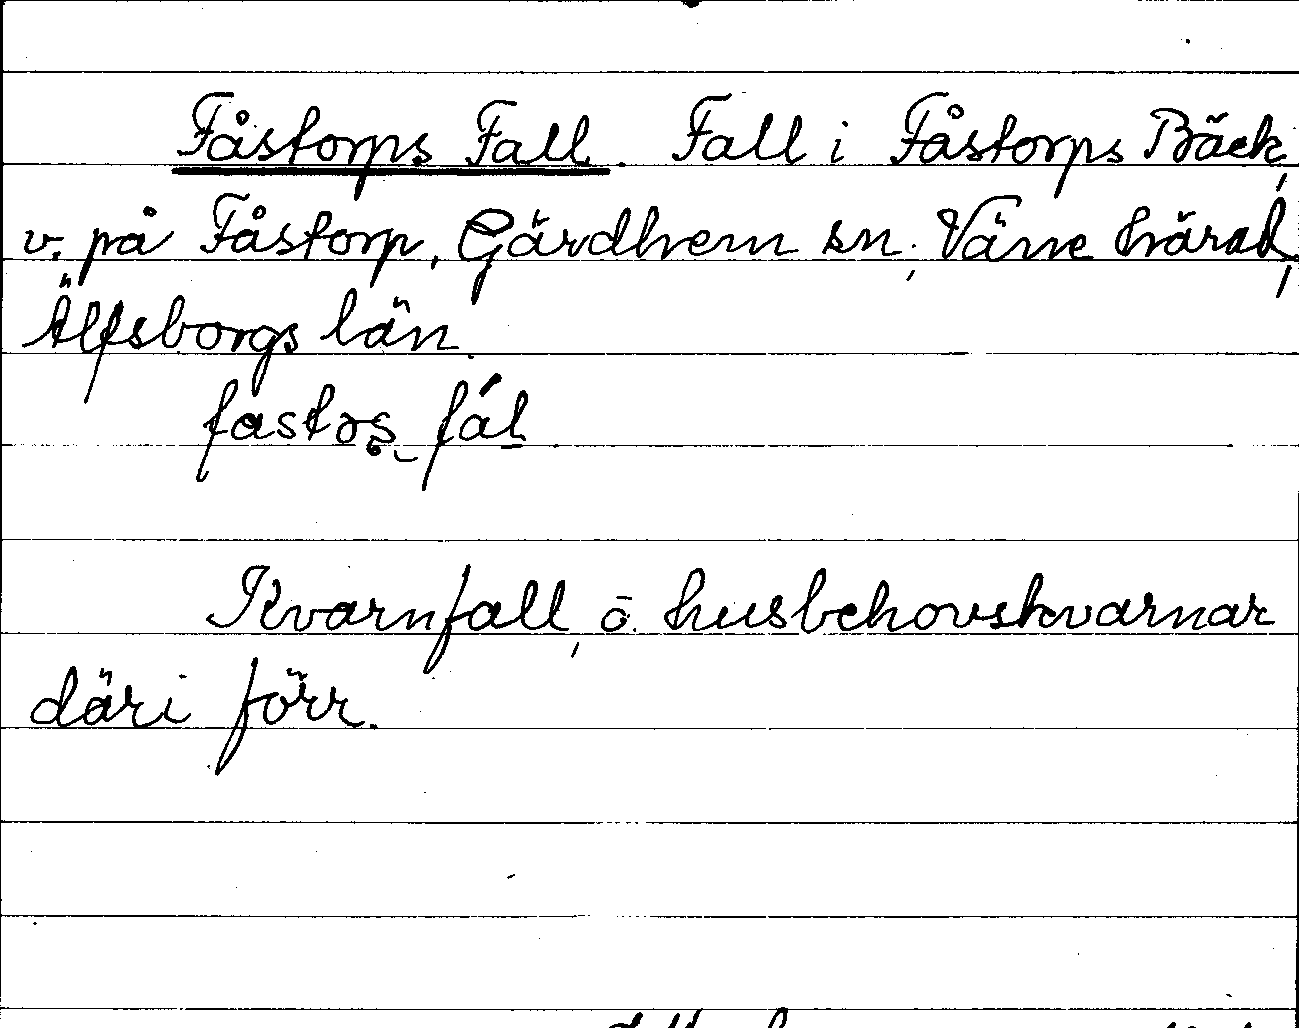 Fåstorps Fall. Fall i Fåstorps Bäck,
v. på Fåstorp, Gärdhem sn, Väne härad,
Älfsborgs län.
Kvarnfall, ö. husbehovskvarnar
däri förr.